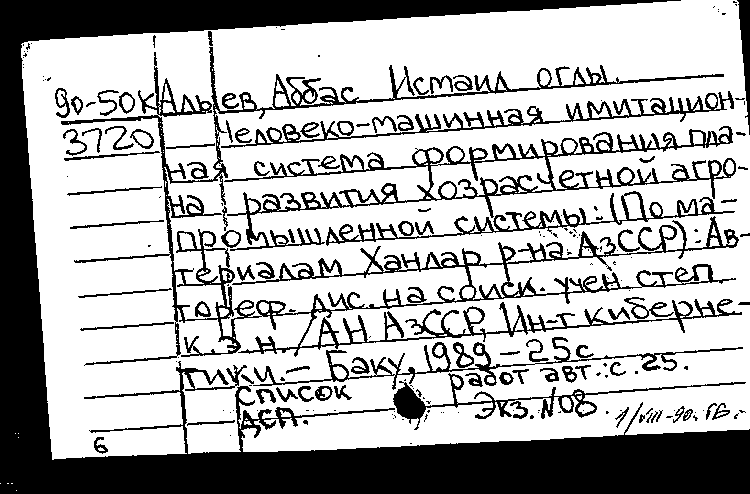 90-50к Алыев, Аббас Исмаил оглы.
3720 Человеко-машинная имитацион-
ная система формирования пла-
на развития хозрасчетной агро-
промышленной системы: (По ма-
териалам Ханлар. р-на АзССР): Ав-
тореф. дис. на соиск. учен. степ.
к.э.н. / АН АзССР, Ин-т киберне-
тики. - Баку, 1989 - 25с
список работ авт.: с. 25.
ДСП. Экз. №08.
6